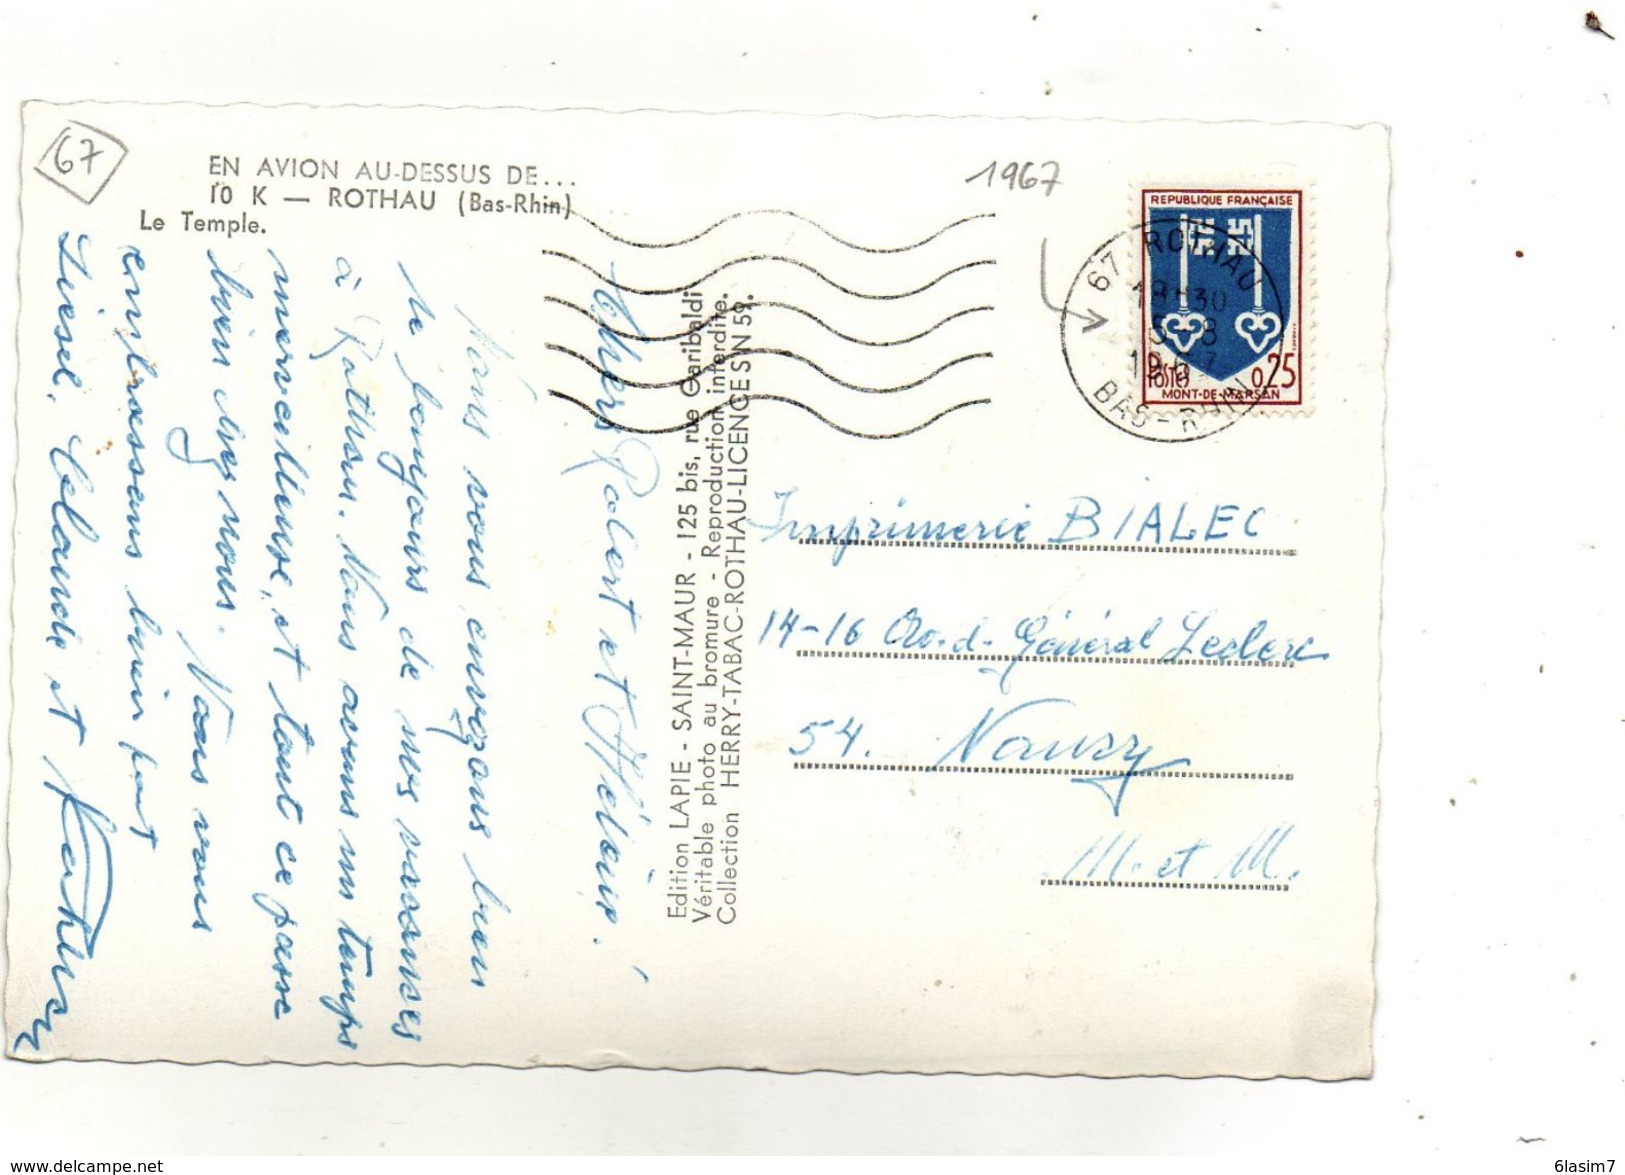 67
EN AVION AU-DESSUS DE...
10 K — ROTHAU (Bas-Rhin)
Le Temple.
1967
REPUBLIQUE FRANÇAISE
POSTES 0,25
MONT-DE-MARSAN
67 ROTHAU
18H30
5-8
1967
BAS-RHIN
Chers Robert et Héloïse!
Nous vous envoyons bien
le bonjours de nos vacances
à Rothau. Nous avons un temps
merveilleux, et tout ce passe
bien chez nous. Nous vous
embrassons bien fort
Liesel, Claude et
Edition LAPIE - SAINT-MAUR - 125 bis, rue Garibaldi
Véritable photo au bromure - Reproduction interdite.
Collection HERRY-TABAC-ROTHAU-LICENCES N 59.
Imprimerie BIALEC
14-16 Général Leclerc
54. Nancy
M. et M.
www.delcampe.net
6lasim7